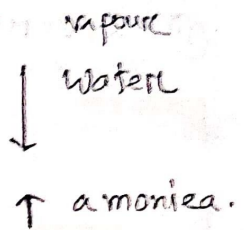 vapoure
Watere
↓
↑ amoniea.